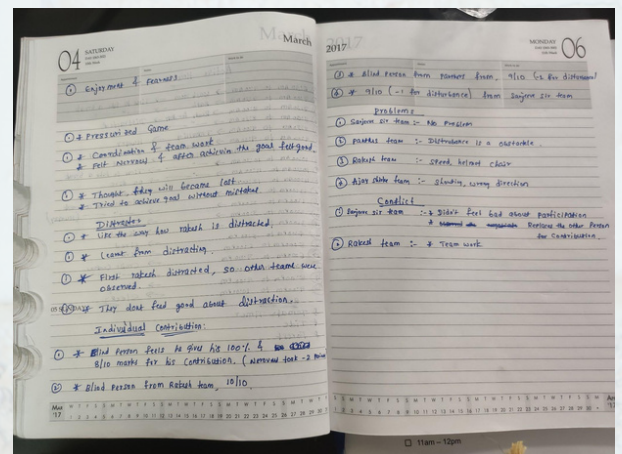 04 SATURDAY
March
① Enjoyment & Fearness
① * Pressurized Game
① * Coordination & team work
* Felt Nervous & after achieving the goal feel good.
① * Thought, they will became last
* Tried to achieve goal without mistakes
Distraction
① * Like the way how rakesh is distracted.
① * Learnt from distraction.
① * First rakesh distracted, so other teams were
observed.
* They dont feel good about distraction.
Individual Contribution:
① * Blind Person feels he gives his 100% &
8/10 marks for his contribution. ( Nervous took -2
② * Blind Person from Rakesh team, 10/10.
Mar
'17
2017
MONDAY 06
③ * Blind Person from Panthers team, 9/10 (-1 for disturbance)
④ * 9/10 (-1 for disturbance) from Sanjeev sir team
Problems
① Sanjeev sir team :- No Problem
② Panthers team :- Disturbance is a obstacle.
③ Rakesh team :- Speed, helmet chair
④ team :- Shouting, wrong direction
Conflict
① Sanjeev sir team :- * Didn't feel bad about Participation
* the other Person
for Contribution
② Rakesh team :- * Team work
11am – 12pm